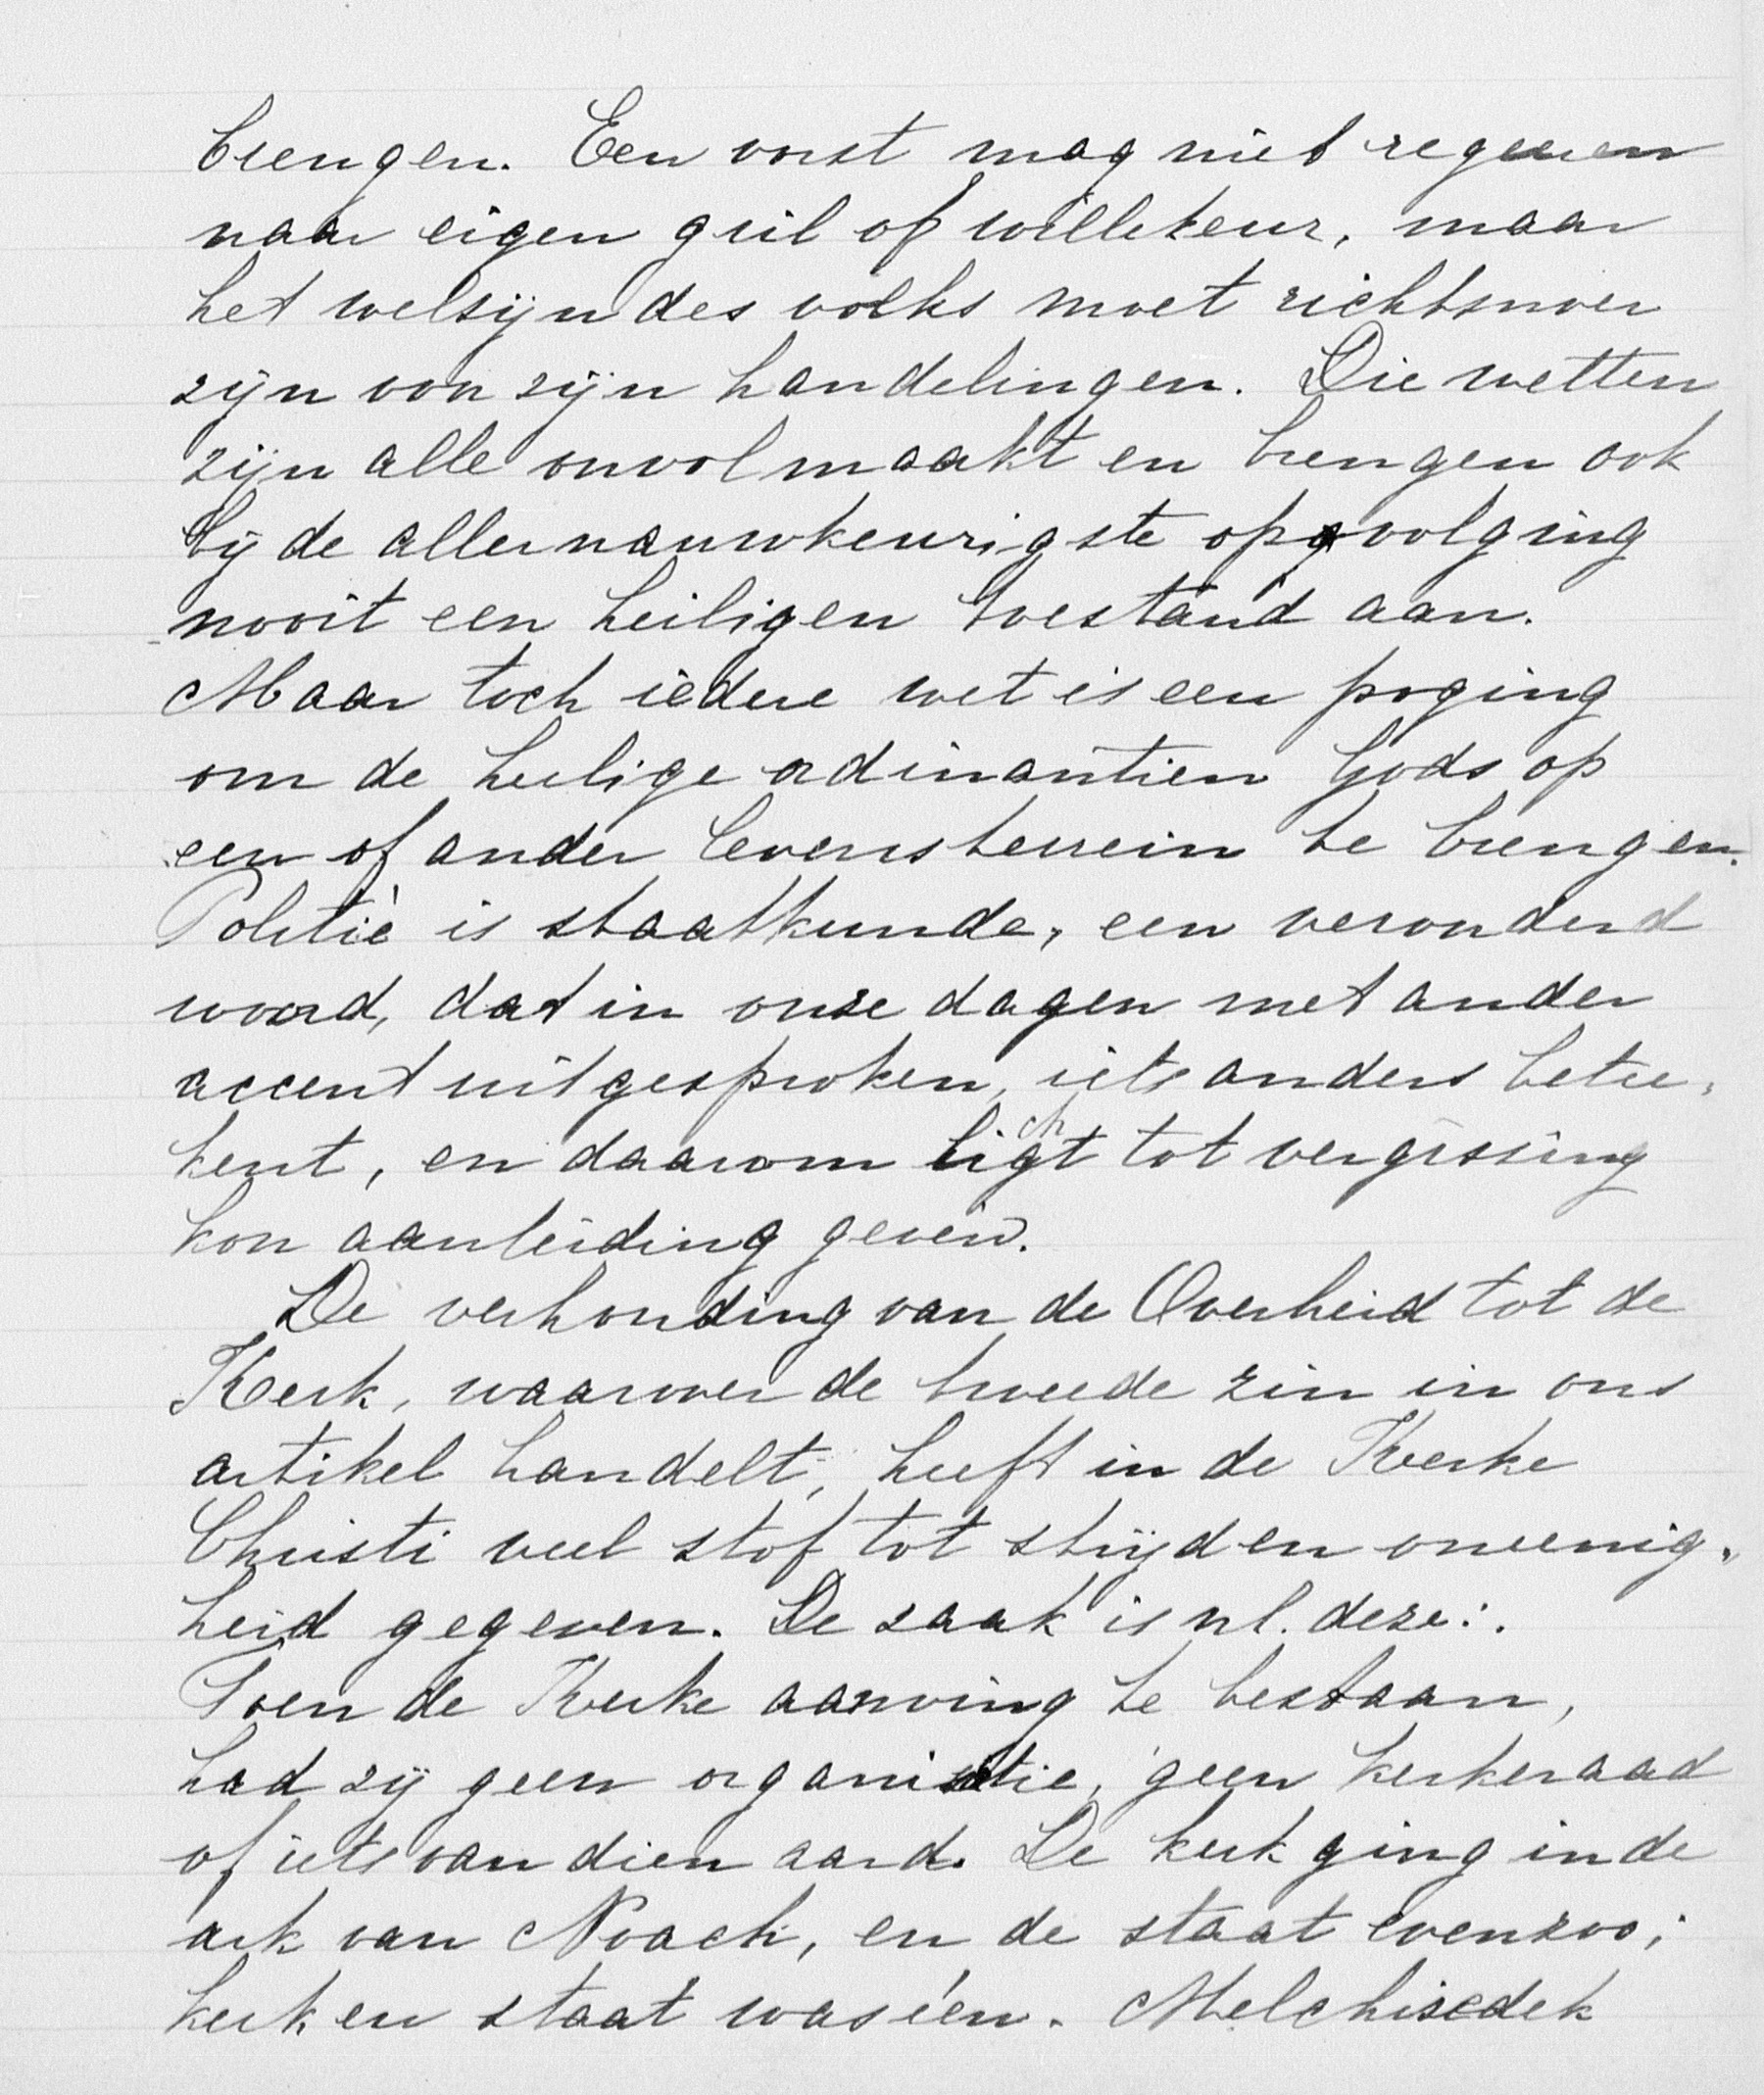 brengen. Een vorst mag niet regeeren
naar eigen gril of willekeur, maar
het welzijn des volks moet richtsnoer
zijn van zijn handelingen. Die wetten
zijn alle onvolmaakt en brengen ook
bij de allernauwkeurigste opvolging
nooit een heiligen toestand aan.
Maar toch iedere wet is een poging
om de heilige ordinantien Gods op
een of ander levensterrein te brengen.
Politiè is staatkunde, een verouderd
woord, dat in onze dagen met ander
accent uitgesproken, iets anders betee-
kent, en daarom licht tot vergissing
kon aanleiding geven.
De verhouding van de Overheid tot de
Kerk, waarover de tweede zin in ons
artikel handelt, heeft in de Kerke
Christi veel stof tot strijd en oneenig-
heid gegeven. De zaak is nl. deze:.
Toen de Kerke aanving te bestaan,
had zij geen organisatie, geen kerkeraad
of iets van dien aard. De kerk ging in de
ark van Noach, en de staat evenzoo;
kerk en staat was één. Melchisedek